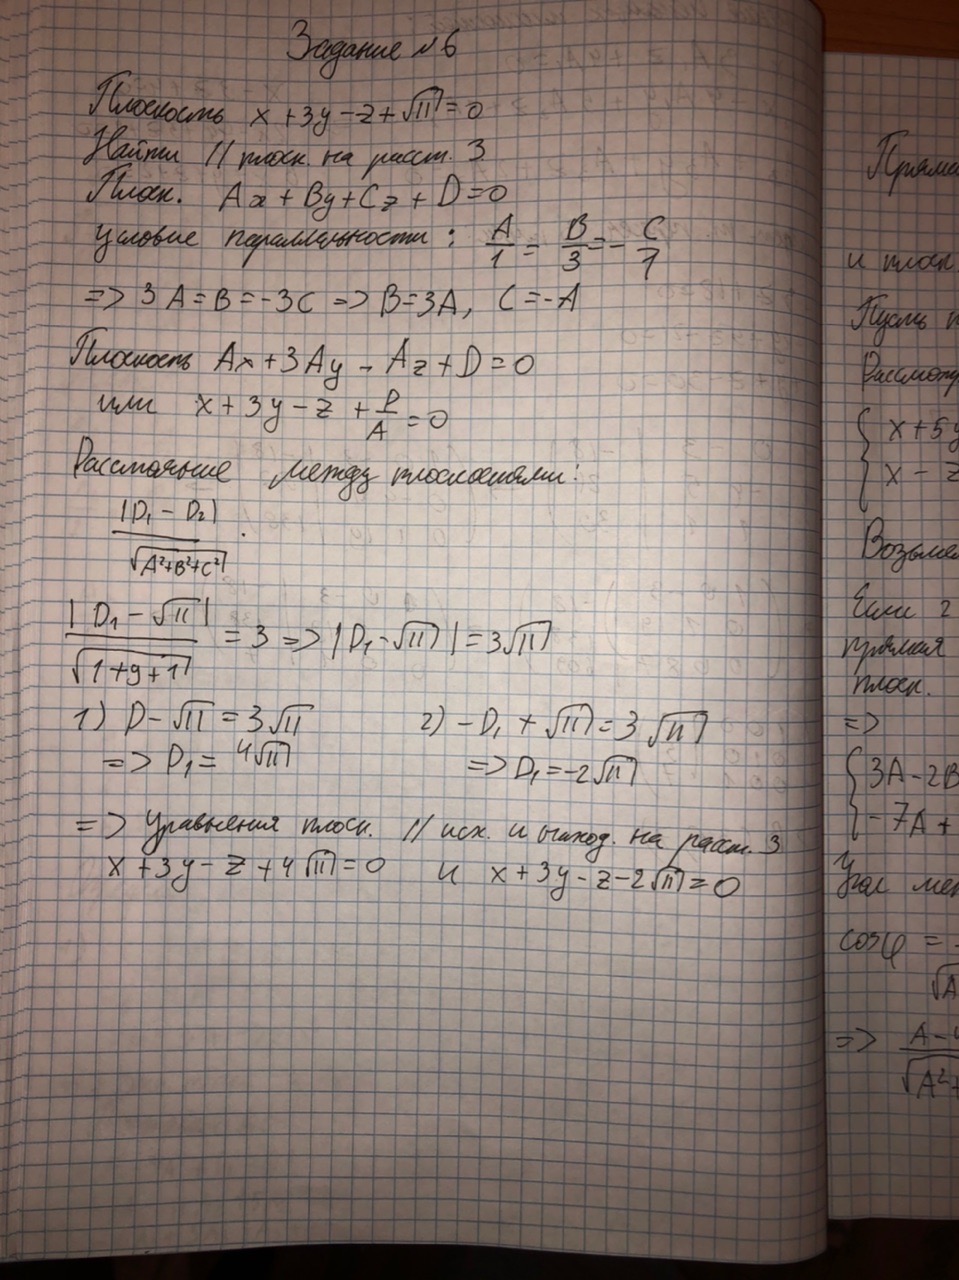 Задание №6
Плоскость x + 3y - z + √11 = 0
Найти // плоск. на расст. 3
Плоск. Ax + By + Cz + D = 0
Условие параллельности: A/1 = B/3 = - C/1
=> 3A = B = -3C => B = 3A, C = -A
Плоскость Ax + 3Ay - Az + D = 0
или x + 3y - z + D/A = 0
Расстояние между плоскостями:
|D₁ - D₂| / √(A²+B²+C²).
|D₁ - √11| / √(1+9+1) = 3 => |D₁ - √11| = 3√11
1) D - √11 = 3√11 2) -D₁ + √11 = 3√11
=> D₁ = 4√11 => D₁ = -2√11
=> Уравнения плоск. // исх. и наход. на расст. 3
x + 3y - z + 4√11 = 0 и x + 3y - z - 2√11 = 0
и плоск.
Пусть
{ x + 5y
x - z
Если 2
прямая
плоск.
=>
{ 3A - 2B
-7A +
Угол
cosφ =
√A
=> A - 4
√A² +